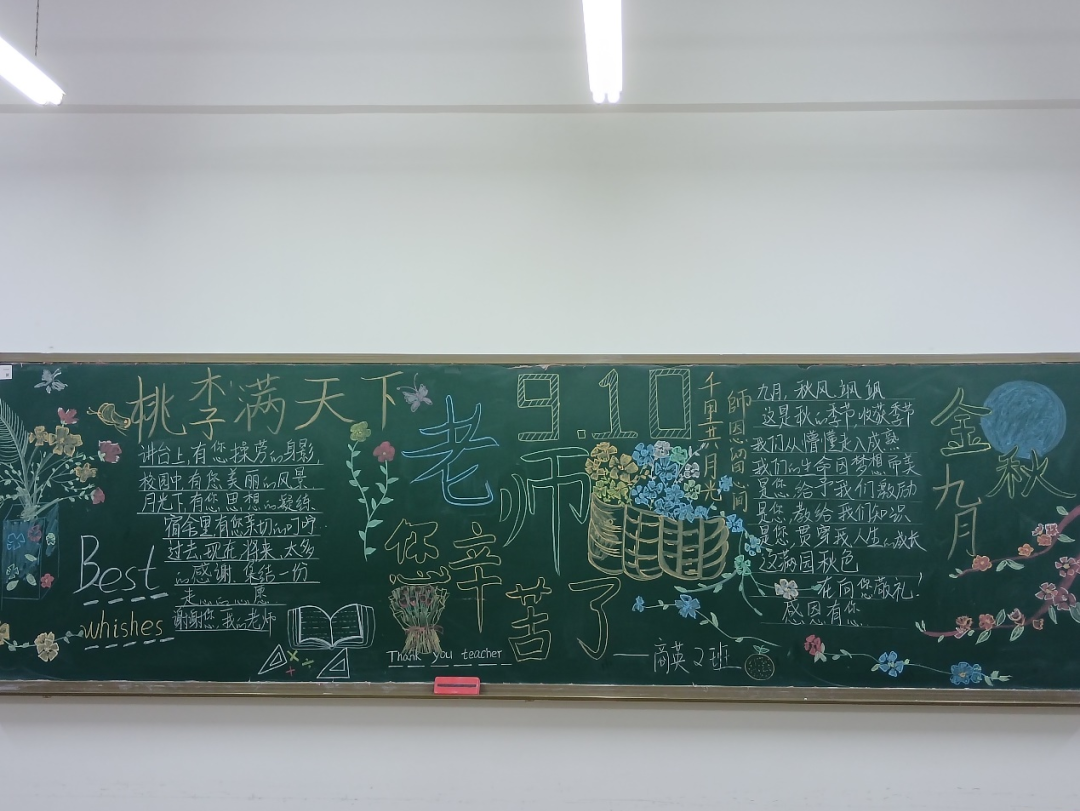 桃李满天下
讲台上,有您操劳的身影
校园中,有您美丽的风景
月光下,有您思想的凝练
宿舍里有您亲切的叮咛.
过去,现在,将来,太多
的感谢,集结一份
愿
谢谢您,我的老师
Best
whishes
9.10
老师
你辛苦了
Thank you teacher
——商英2班
千里共月光
師恩留心间
九月,秋风飒飒
这是秋的季节,收获季节
我们从懵懂走入成熟
我们的生命因梦想而美
是您,给予我们激励
是您,教给我们知识
是您,贯穿我人生的成长
这满园秋色
在向您敬礼!
感因有您
金秋
九月